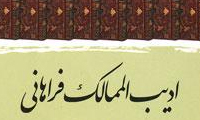 ادیب الممالک فراهانی